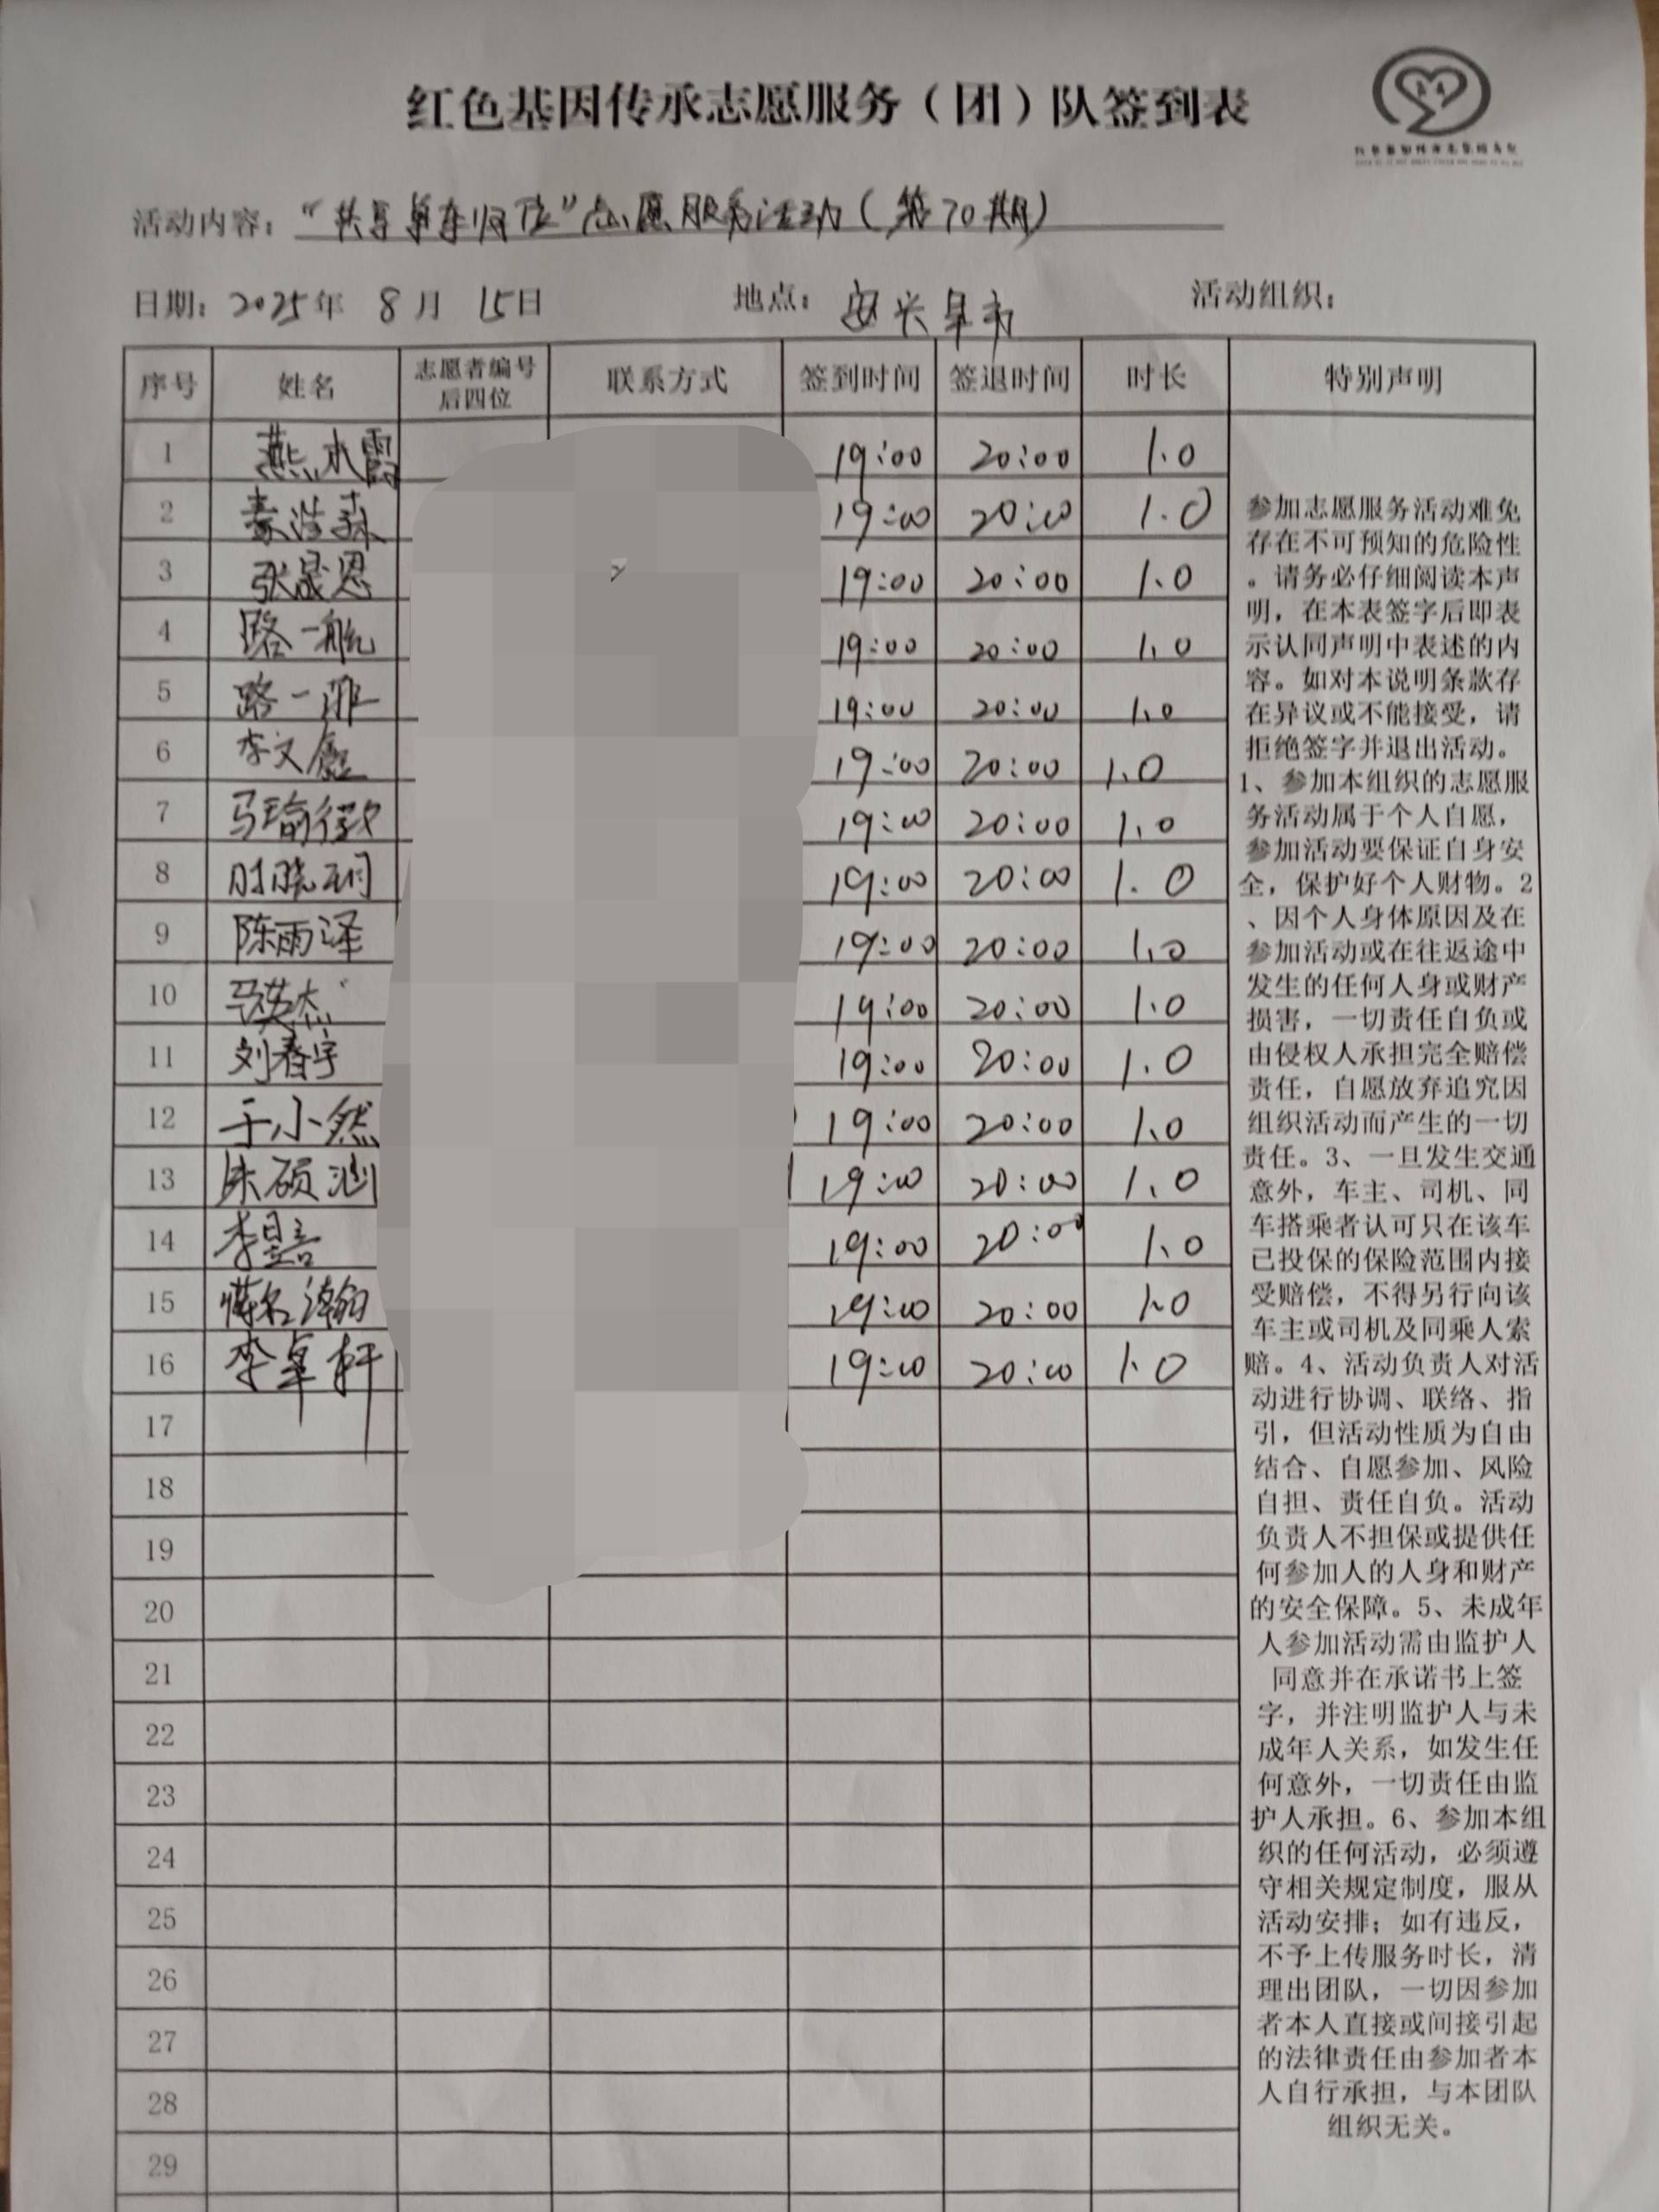 红色基因传承志愿服务（团）队签到表
活动内容：“共享单车归位”志愿服务活动（第70期）
日期：2025年 8月 15日 地点：安兴早市 活动组织：
序号 姓名 志愿者编号后四位 联系方式 签到时间 签退时间 时长 特别声明
1 燕水霞 19:00 20:00 1.0
2 秦浩森 19:00 20:00 1.0
3 张晟恩 19:00 20:00 1.0
4 路一航 19:00 20:00 1.0
5 路一 19:00 20:00 1.0
6 李文 19:00 20:00 1.0
7 马瑜徽 19:00 20:00 1.0
8 时晓玥 19:00 20:00 1.0
9 陈雨泽 19:00 20:00 1.0
10 马英杰 19:00 20:00 1.0
11 刘春宇 19:00 20:00 1.0
12 于小然 19:00 20:00 1.0
13 朱硕 19:00 20:00 1.0
14 李昱言 19:00 20:00 1.0
15 19:00 20:00 1.0
16 李卓轩 19:00 20:00 1.0
17
18
19
20
21
22
23
24
25
26
27
28
29
参加志愿服务活动难免
存在不可预知的危险性
。请务必仔细阅读本声
明，在本表签字后即表
示认同声明中表述的内
容。如对本说明条款存
在异议或不能接受，请
拒绝签字并退出活动。
1、参加本组织的志愿服
务活动属于个人自愿，
参加活动要保证自身安
全，保护好个人财物。2
、因个人身体原因及在
参加活动或在往返途中
发生的任何人身或财产
损害，一切责任自负或
由侵权人承担完全赔偿
责任，自愿放弃追究因
组织活动而产生的一切
责任。3、一旦发生交通
意外，车主、司机、同
车搭乘者认可只在该车
已投保的保险范围内接
受赔偿，不得另行向该
车主或司机及同乘人索
赔。4、活动负责人对活
动进行协调、联络、指
引，但活动性质为自由
结合、自愿参加、风险
自担、责任自负。活动
负责人不担保或提供任
何参加人的人身和财产
的安全保障。5、未成年
人参加活动需由监护人
同意并在承诺书上签
字，并注明监护人与未
成年人关系，如发生任
何意外，一切责任由监
护人承担。6、参加本组
织的任何活动，必须遵
守相关规定制度，服从
活动安排；如有违反，
不予上传服务时长，清
理出团队，一切因参加
者本人直接或间接引起
的法律责任由参加者本
人自行承担，与本团队
组织无关。